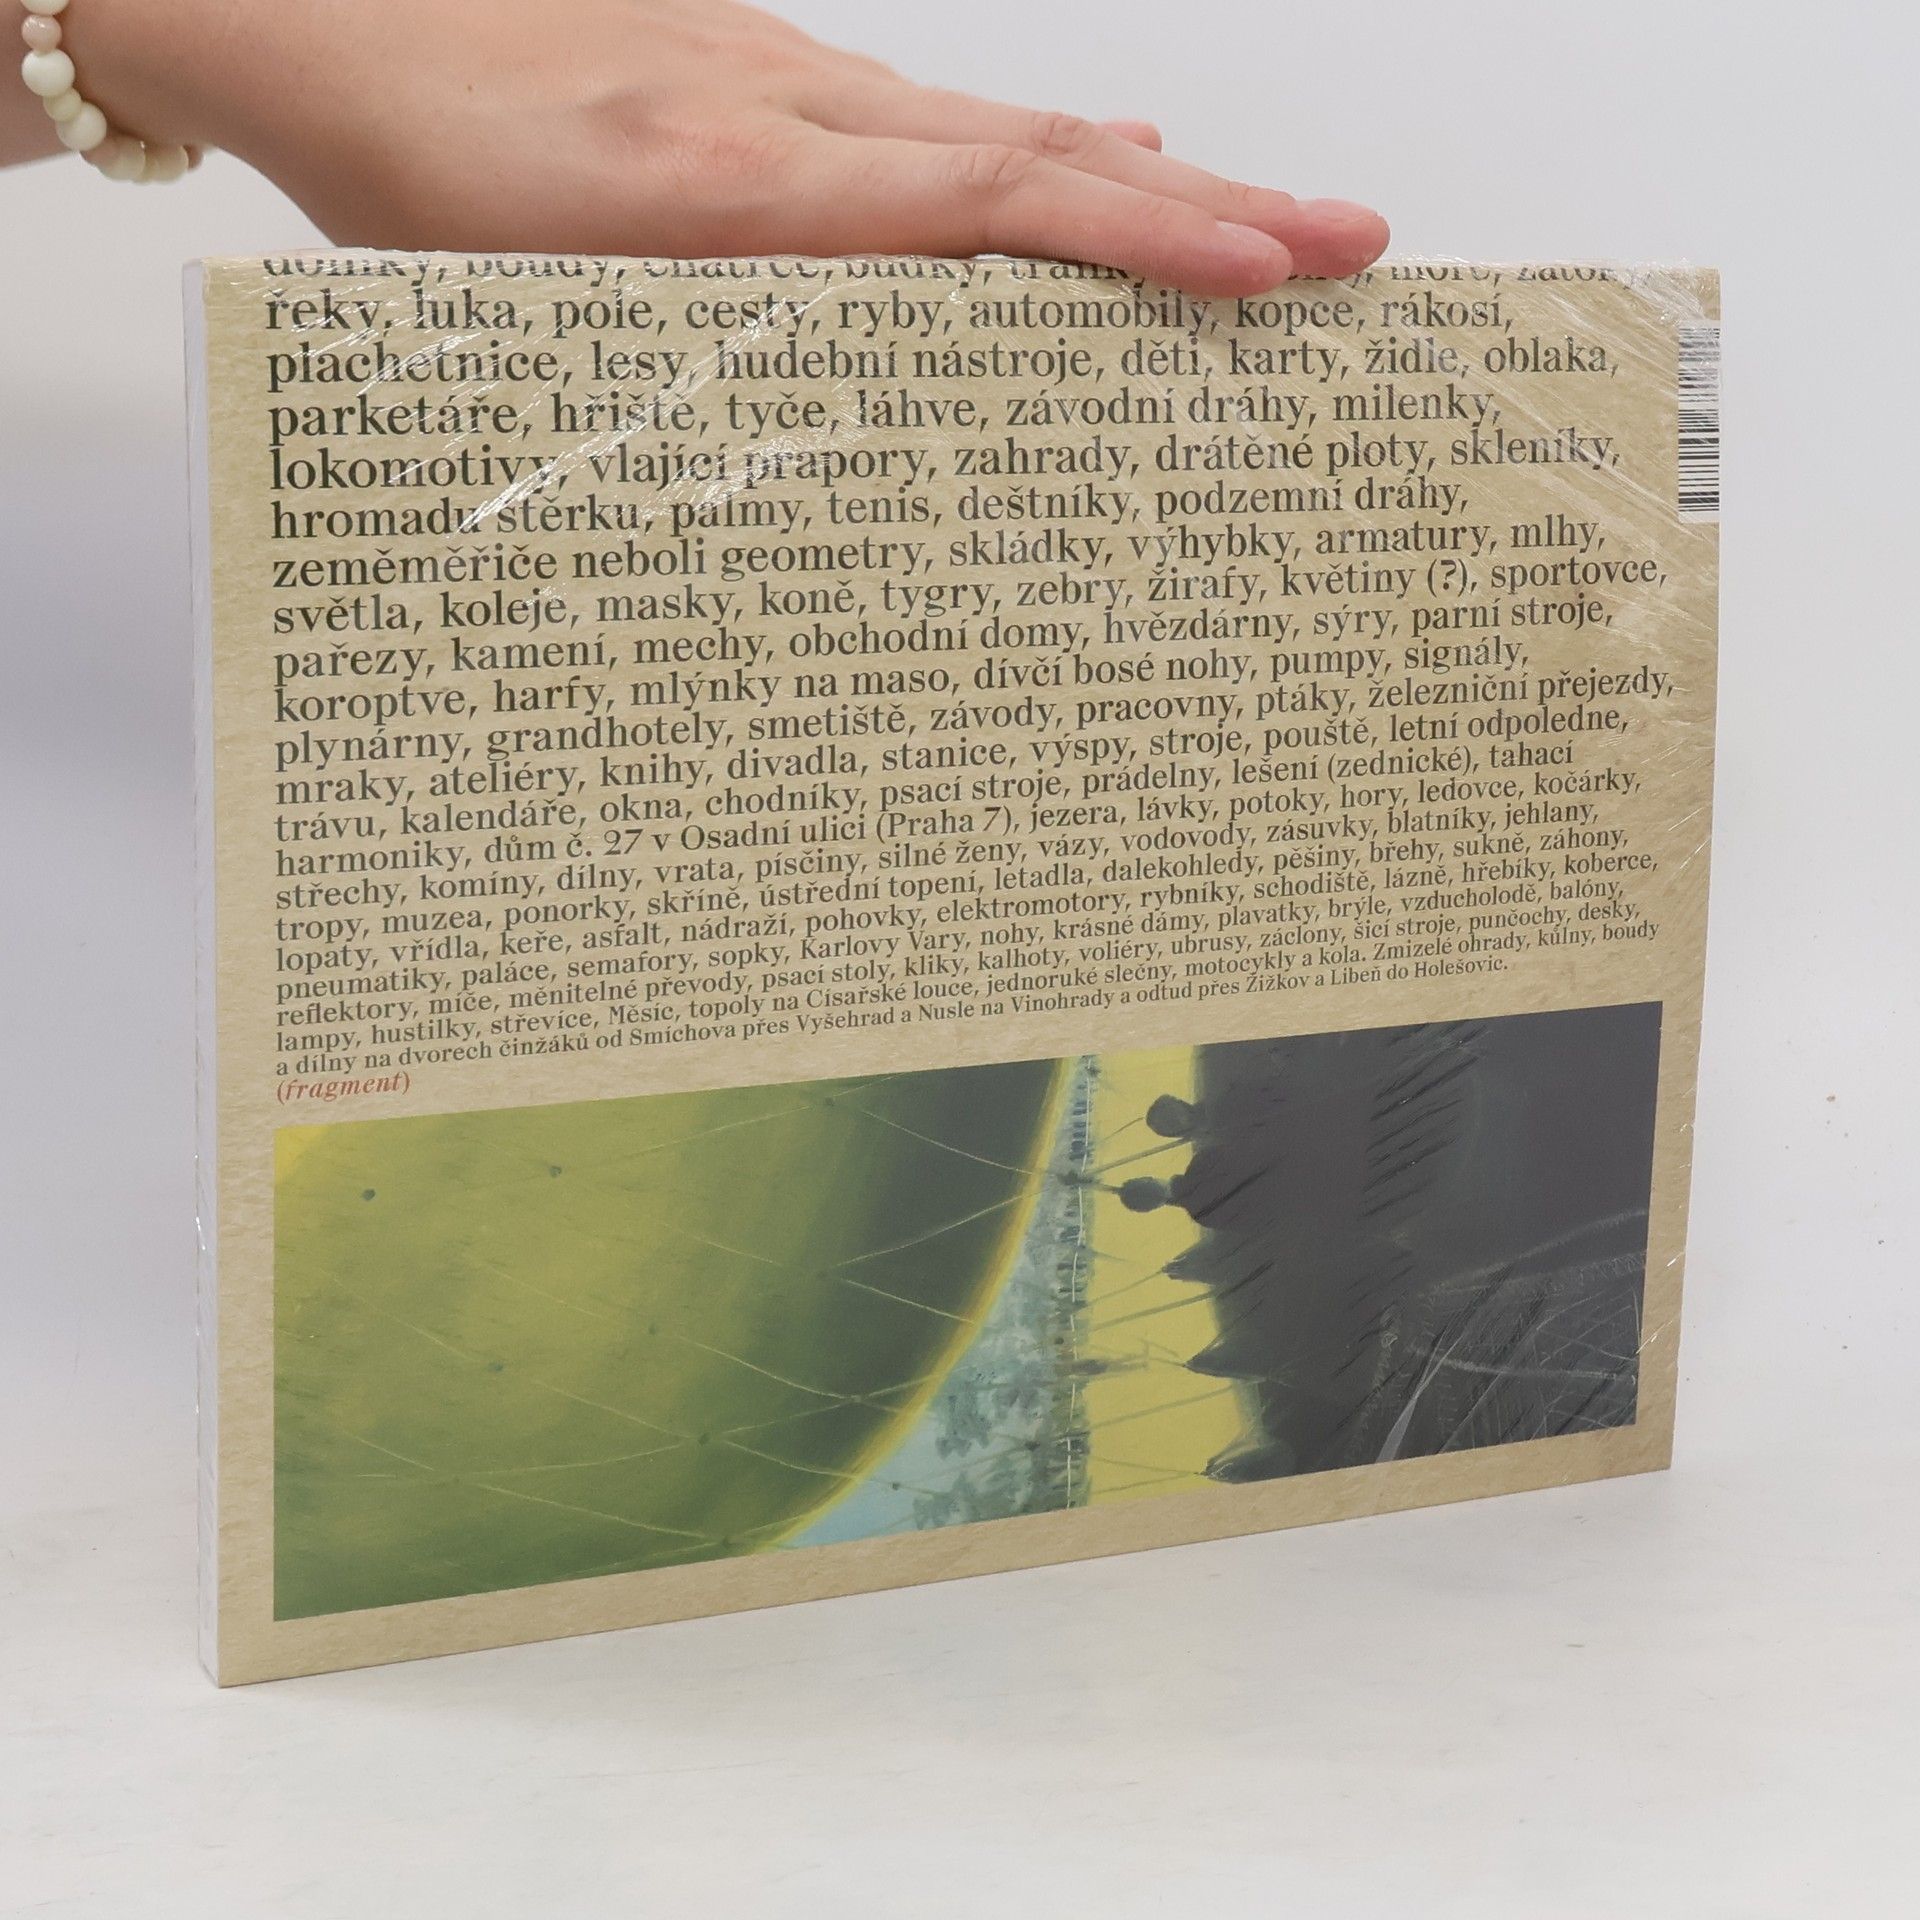 domky, boudy, chatrče, budky, moře, zátoky,
řeky, luka, pole, cesty, ryby, automobily, kopce, rákosí,
plachetnice, lesy, hudební nástroje, děti, karty, židle, oblaka,
parketáře, hřiště, tyče, láhve, závodní dráhy, milenky,
lokomotivy, vlající prapory, zahrady, drátěné ploty, skleníky,
hromadu štěrku, palmy, tenis, deštníky, podzemní dráhy,
zeměměřiče neboli geometry, skládky, výhybky, armatury, mlhy,
světla, koleje, masky, koně, tygry, zebry, žirafy, květiny (?), sportovce,
pařezy, kamení, mechy, obchodní domy, hvězdárny, sýry, parní stroje,
koroptve, harfy, mlýnky na maso, dívčí bosé nohy, pumpy, signály,
plynárny, grandhotely, smetiště, závody, pracovny, ptáky, železniční přejezdy,
mraky, ateliéry, knihy, divadla, stanice, výspy, stroje, pouště, letní odpoledne,
trávu, kalendáře, okna, chodníky, psací stroje, prádelny, lešení (zednické), tahací
harmoniky, dům č. 27 v Osadní ulici (Praha 7), jezera, lávky, potoky, hory, ledovce, kočárky,
střechy, komíny, dílny, vrata, písčiny, silné ženy, vázy, vodovody, zásuvky, blatníky, jehlany,
tropy, muzea, ponorky, skříně, ústřední topení, letadla, dalekohledy, pěšiny, břehy, sukně, záhony,
lopaty, vřídla, keře, asfalt, nádraží, pohovky, elektromotory, rybníky, schodiště, lázně, hřebíky, koberce,
pneumatiky, paláce, semafory, sopky, Karlovy Vary, nohy, krásné dámy, plavatky, brýle, vzducholodě, balóny,
reflektory, míče, měnitelné převody, psací stoly, kliky, kalhoty, voliéry, ubrusy, záclony, šicí stroje, punčochy, desky,
lampy, hustilky, střevíce, Měsíc, topoly na Císařské louce, jednoruké slečny, motocykly a kola. Zmizelé ohrady, kůlny, boudy
a dílny na dvorech činžáků od Smíchova přes Vyšehrad a Nusle na Vinohrady a odtud přes Žižkov a Libeň do Holešovic.
(fragment)